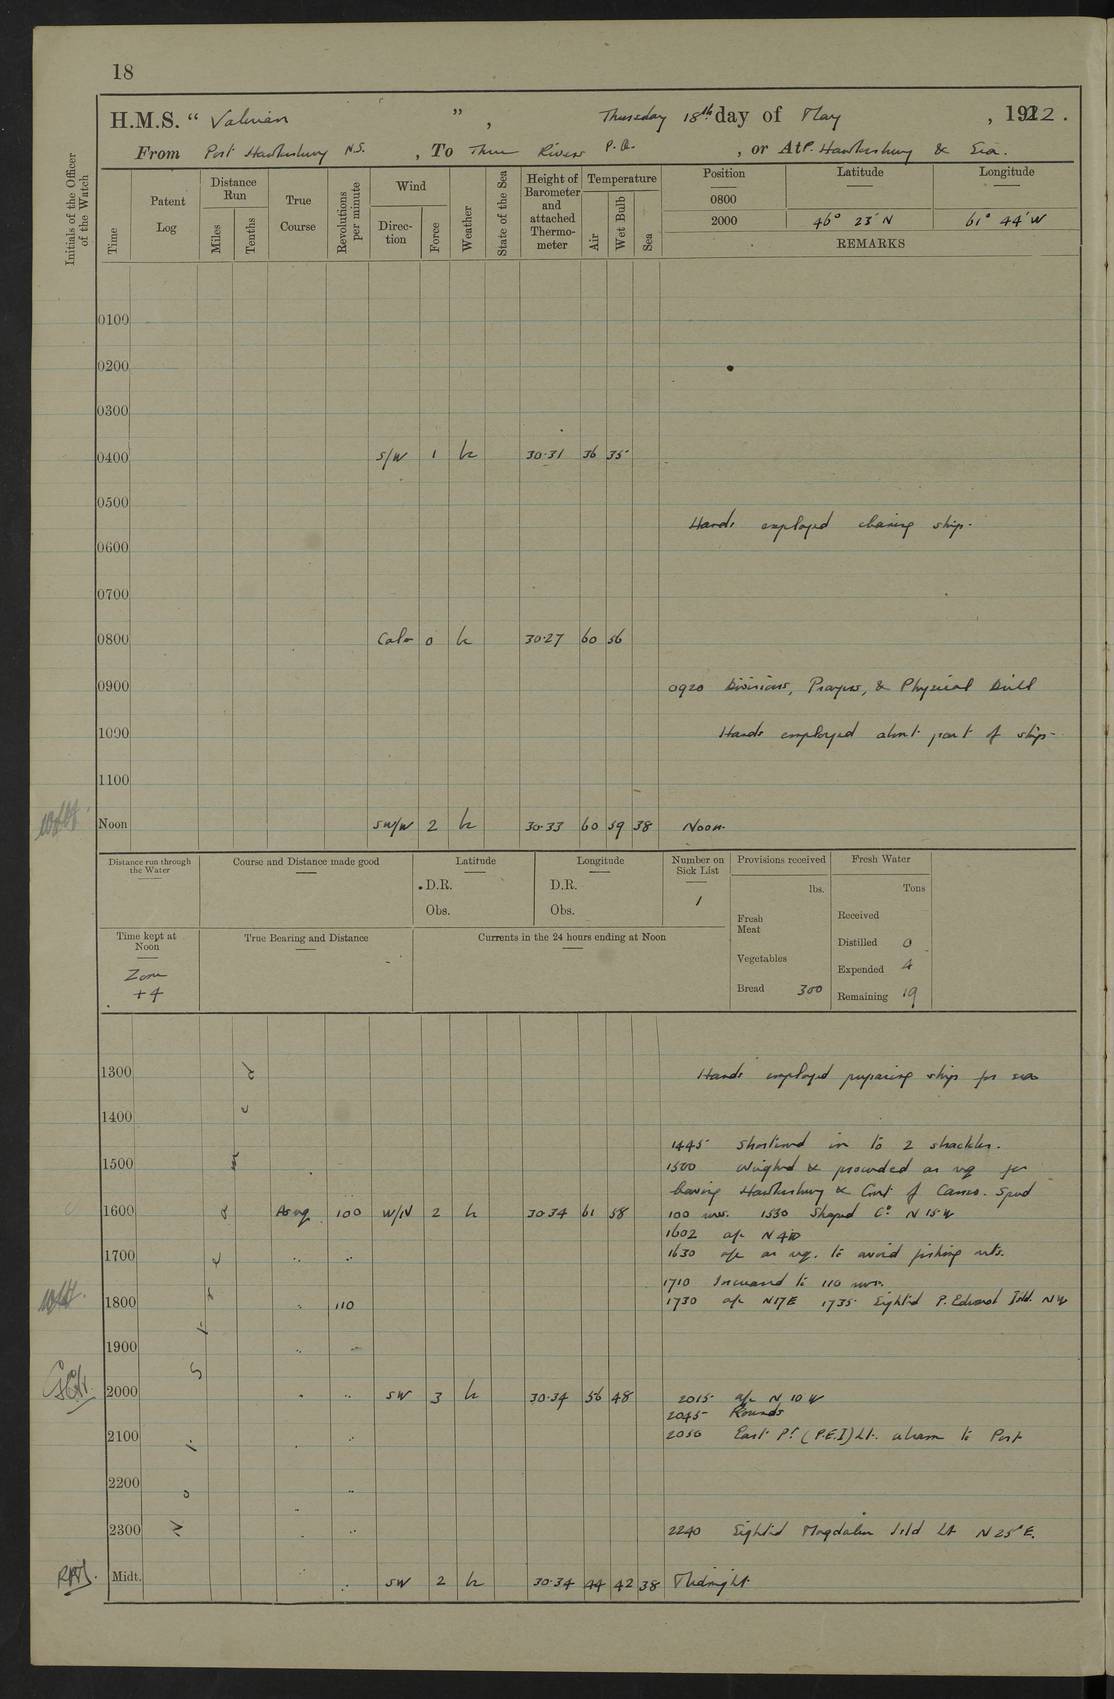 18
H.M.S. “ Valerian ” , Thursday 18th day of May , 1922 .
From Port Hawkesbury N.S. , To Three Rivers P.Q. , or At P. Hawkesbury & Sea.
Initials of the Officer of the Watch
Time
Patent Log
Distance Run
Miles
Tenths
True Course
Revolutions per minute
Wind
Direction
Force
Weather
State of the Sea
Height of Barometer and attached Thermometer
Temperature
Air
Wet Bulb
Sea
Position Latitude Longitude
0800
2000 46° 23′ N 61° 44′ W
REMARKS
0100
0200
0300
0400 S/W 1 b 30·31 36 35
0500
Hands employed cleaning ship.
0600
0700
0800 Calm 0 b 30·27 60 56
0900 0920 Divisions, Prayers, & Physical Drill
1000 Hands employed about part of ship.
1100
Noon SW/W 2 b 30·33 60 59 38 Noon.
Distance run through the Water
Course and Distance made good
Latitude
D.R.
Obs.
Longitude
D.R.
Obs.
Number on Sick List
1
Provisions received
lbs.
Fresh Meat
Vegetables
Bread 300
Fresh Water
Tons
Received
Distilled 0
Expended 4
Remaining 19
Time kept at Noon
Zone
+4
True Bearing and Distance
Currents in the 24 hours ending at Noon
Not Streamed
1300 Hands employed preparing ship for sea
1400
1445 Shortened in to 2 shackles.
1500 1500 Weighed & proceeded as req for
leaving Hawkesbury & Gut of Canso. Speed
1600 As req. 100 W/N 2 b 30·34 61 58 100 revs. 1530 Shaped Co. N 15 W
1602 a/c N 4
1630 a/c as req. to avoid fishing nets.
1700 ″ ″
1710 Increased to 110 revs.
1800 ″ 110 1730 a/c N17E 1735 Sighted P. Edward Isld. NW
1900 ″ ″
2000 ″ ″ SW 3 b 30·34 56 48 2015 a/c N 10 W
2045 Rounds
2100 ″ ″ 2050 East Pt. (P.E.I) Lt. abeam to Port
2200 ″ ″
2300 ″ ″ 2240 Sighted Magdalen Isld Lt N 25° E.
Midt. ″ SW 2 b 30·34 44 42 38 Midnight